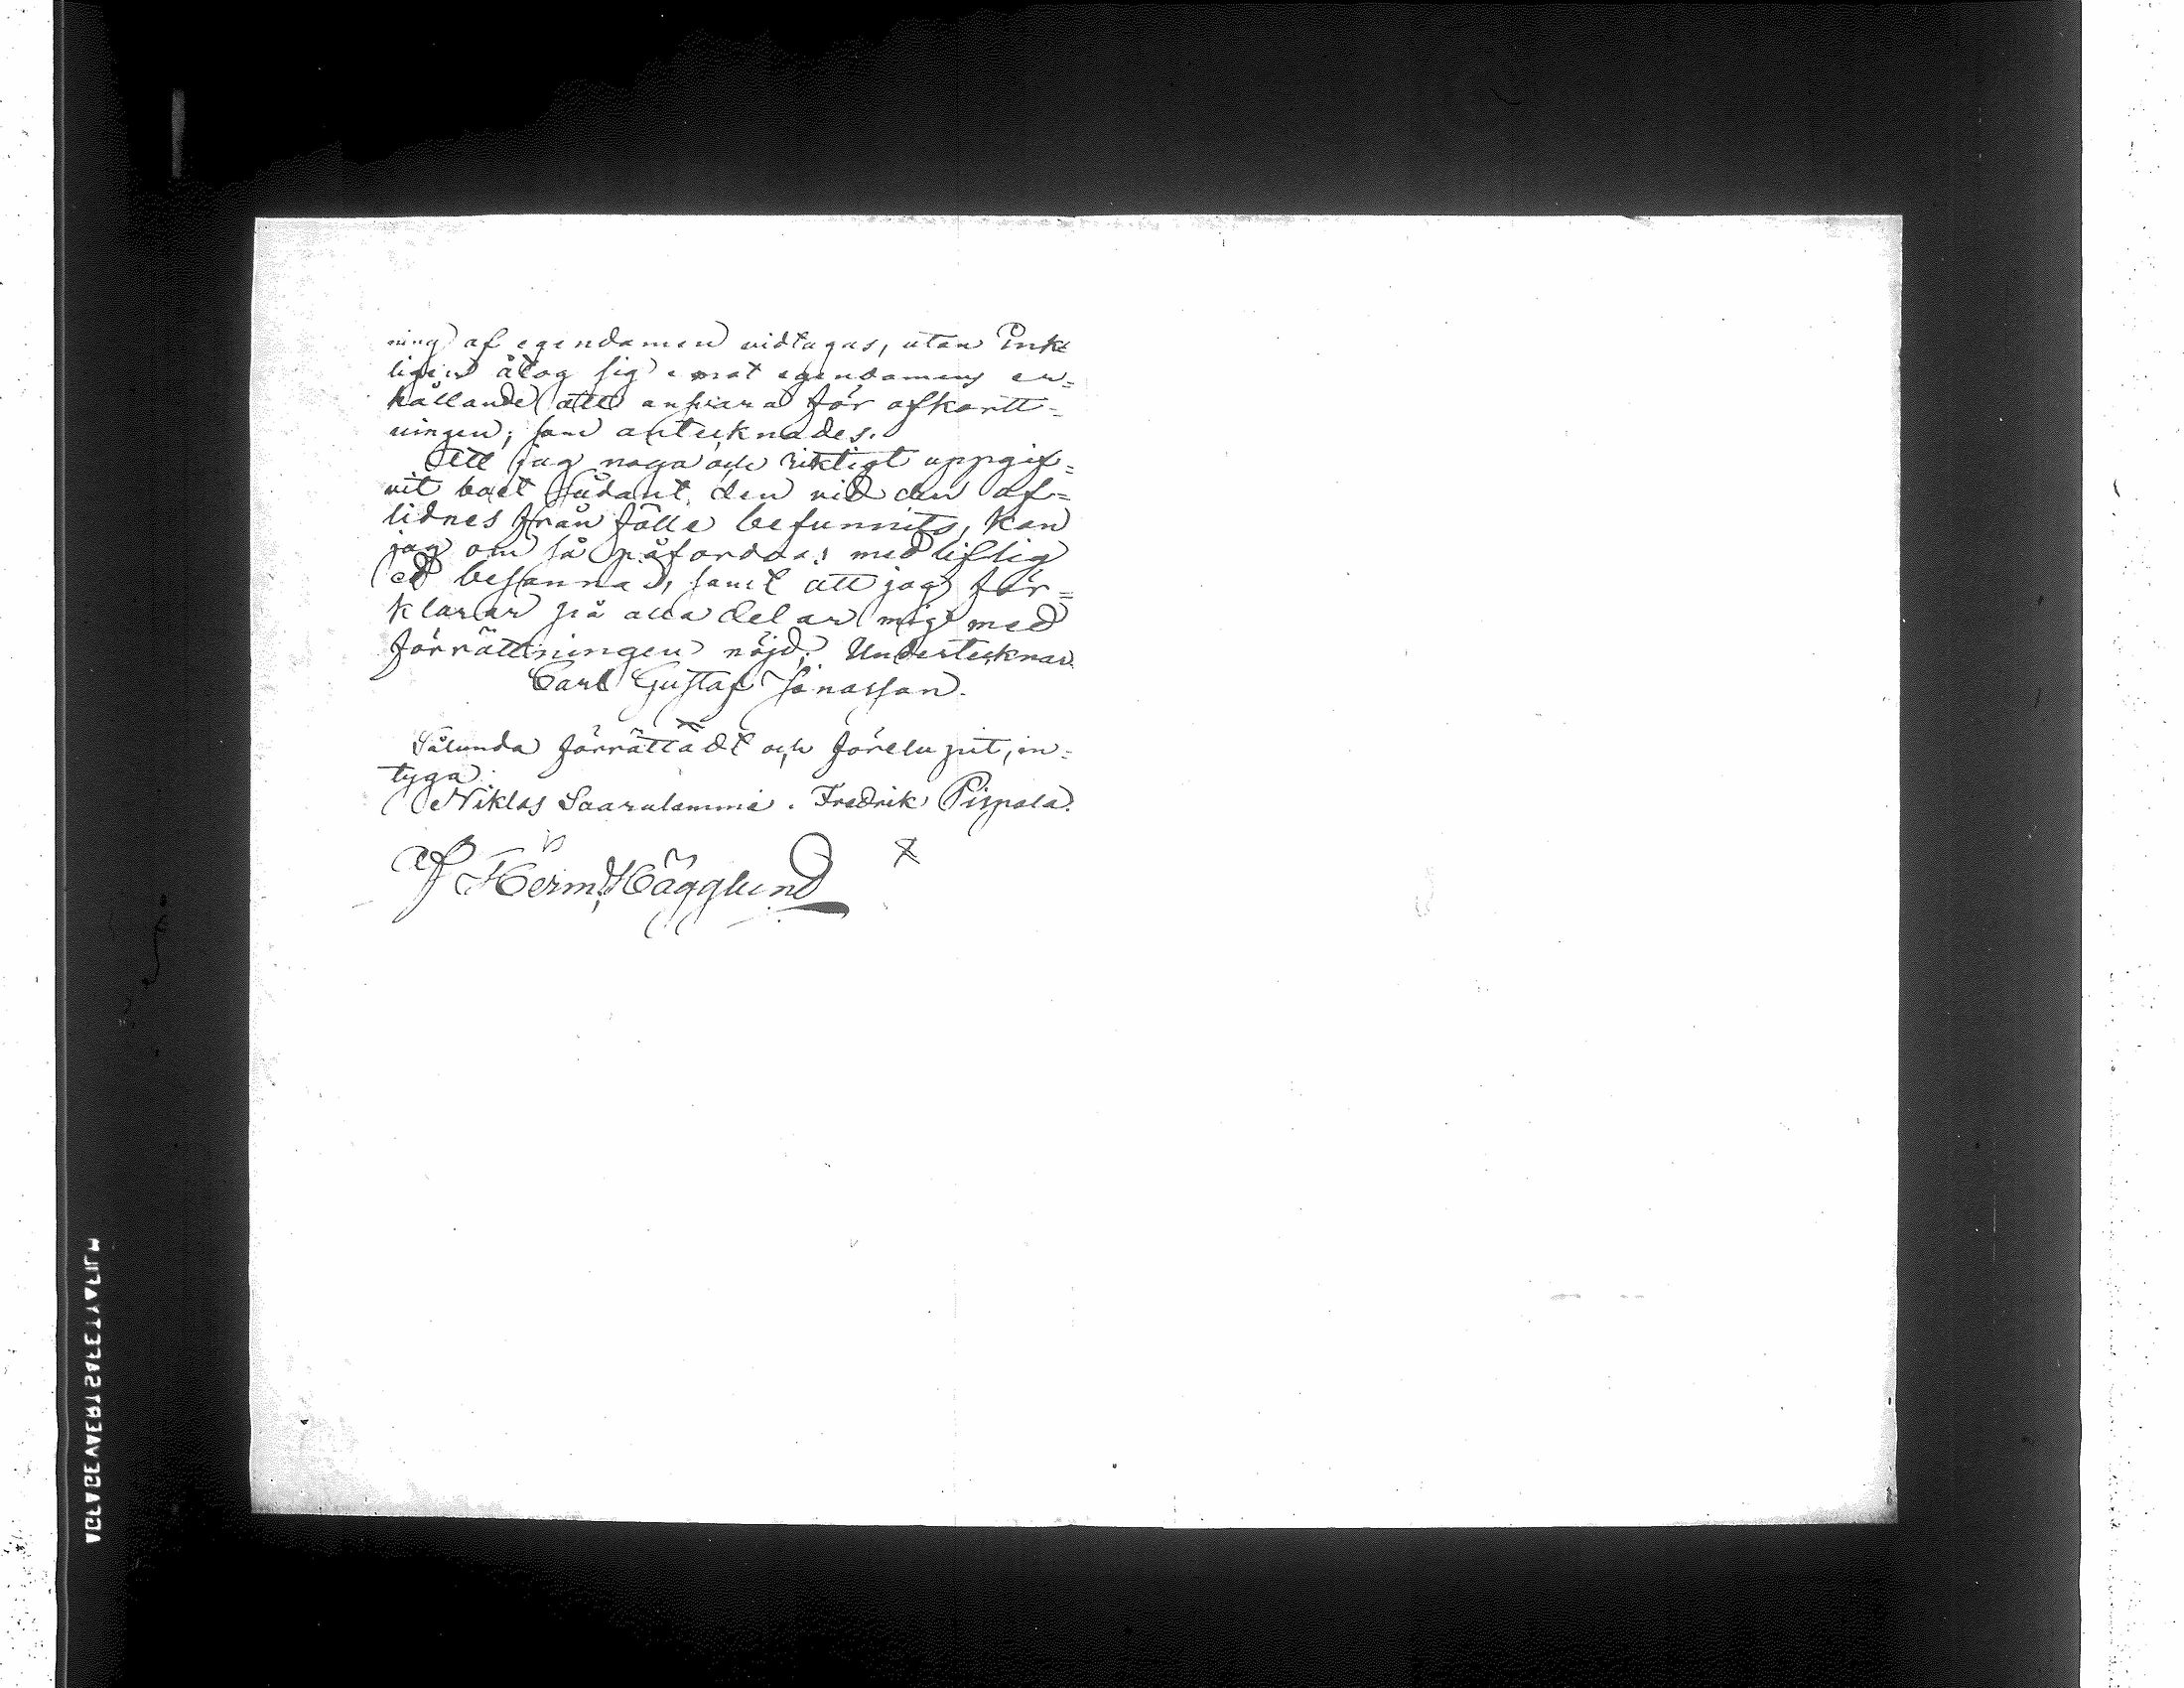 ning af egendomen vidtagas, utan Enk¬
ligen åtog sig emot egendomens er¬
hållande att ansvara för afkortt¬
ningen; som antecknades.
Att jag noga och riktigt uppgif¬
vit boet sådant den vid den af¬
lidnes frånfälle befunnits, kan
jag om så påfordras med liflig
ed besanna, samt att jag för¬
klarar på alla delar mig med
förrättningen nöjd. Undertecknar
Carl Gustaf Jonasson.
Sålunda förrättadt och förelupit, in¬
tyga.
Niklas Saarulammi. Fredrik Pispala.
af Herm. Hägglund
AGFAGEVAERT SAFETY FILM